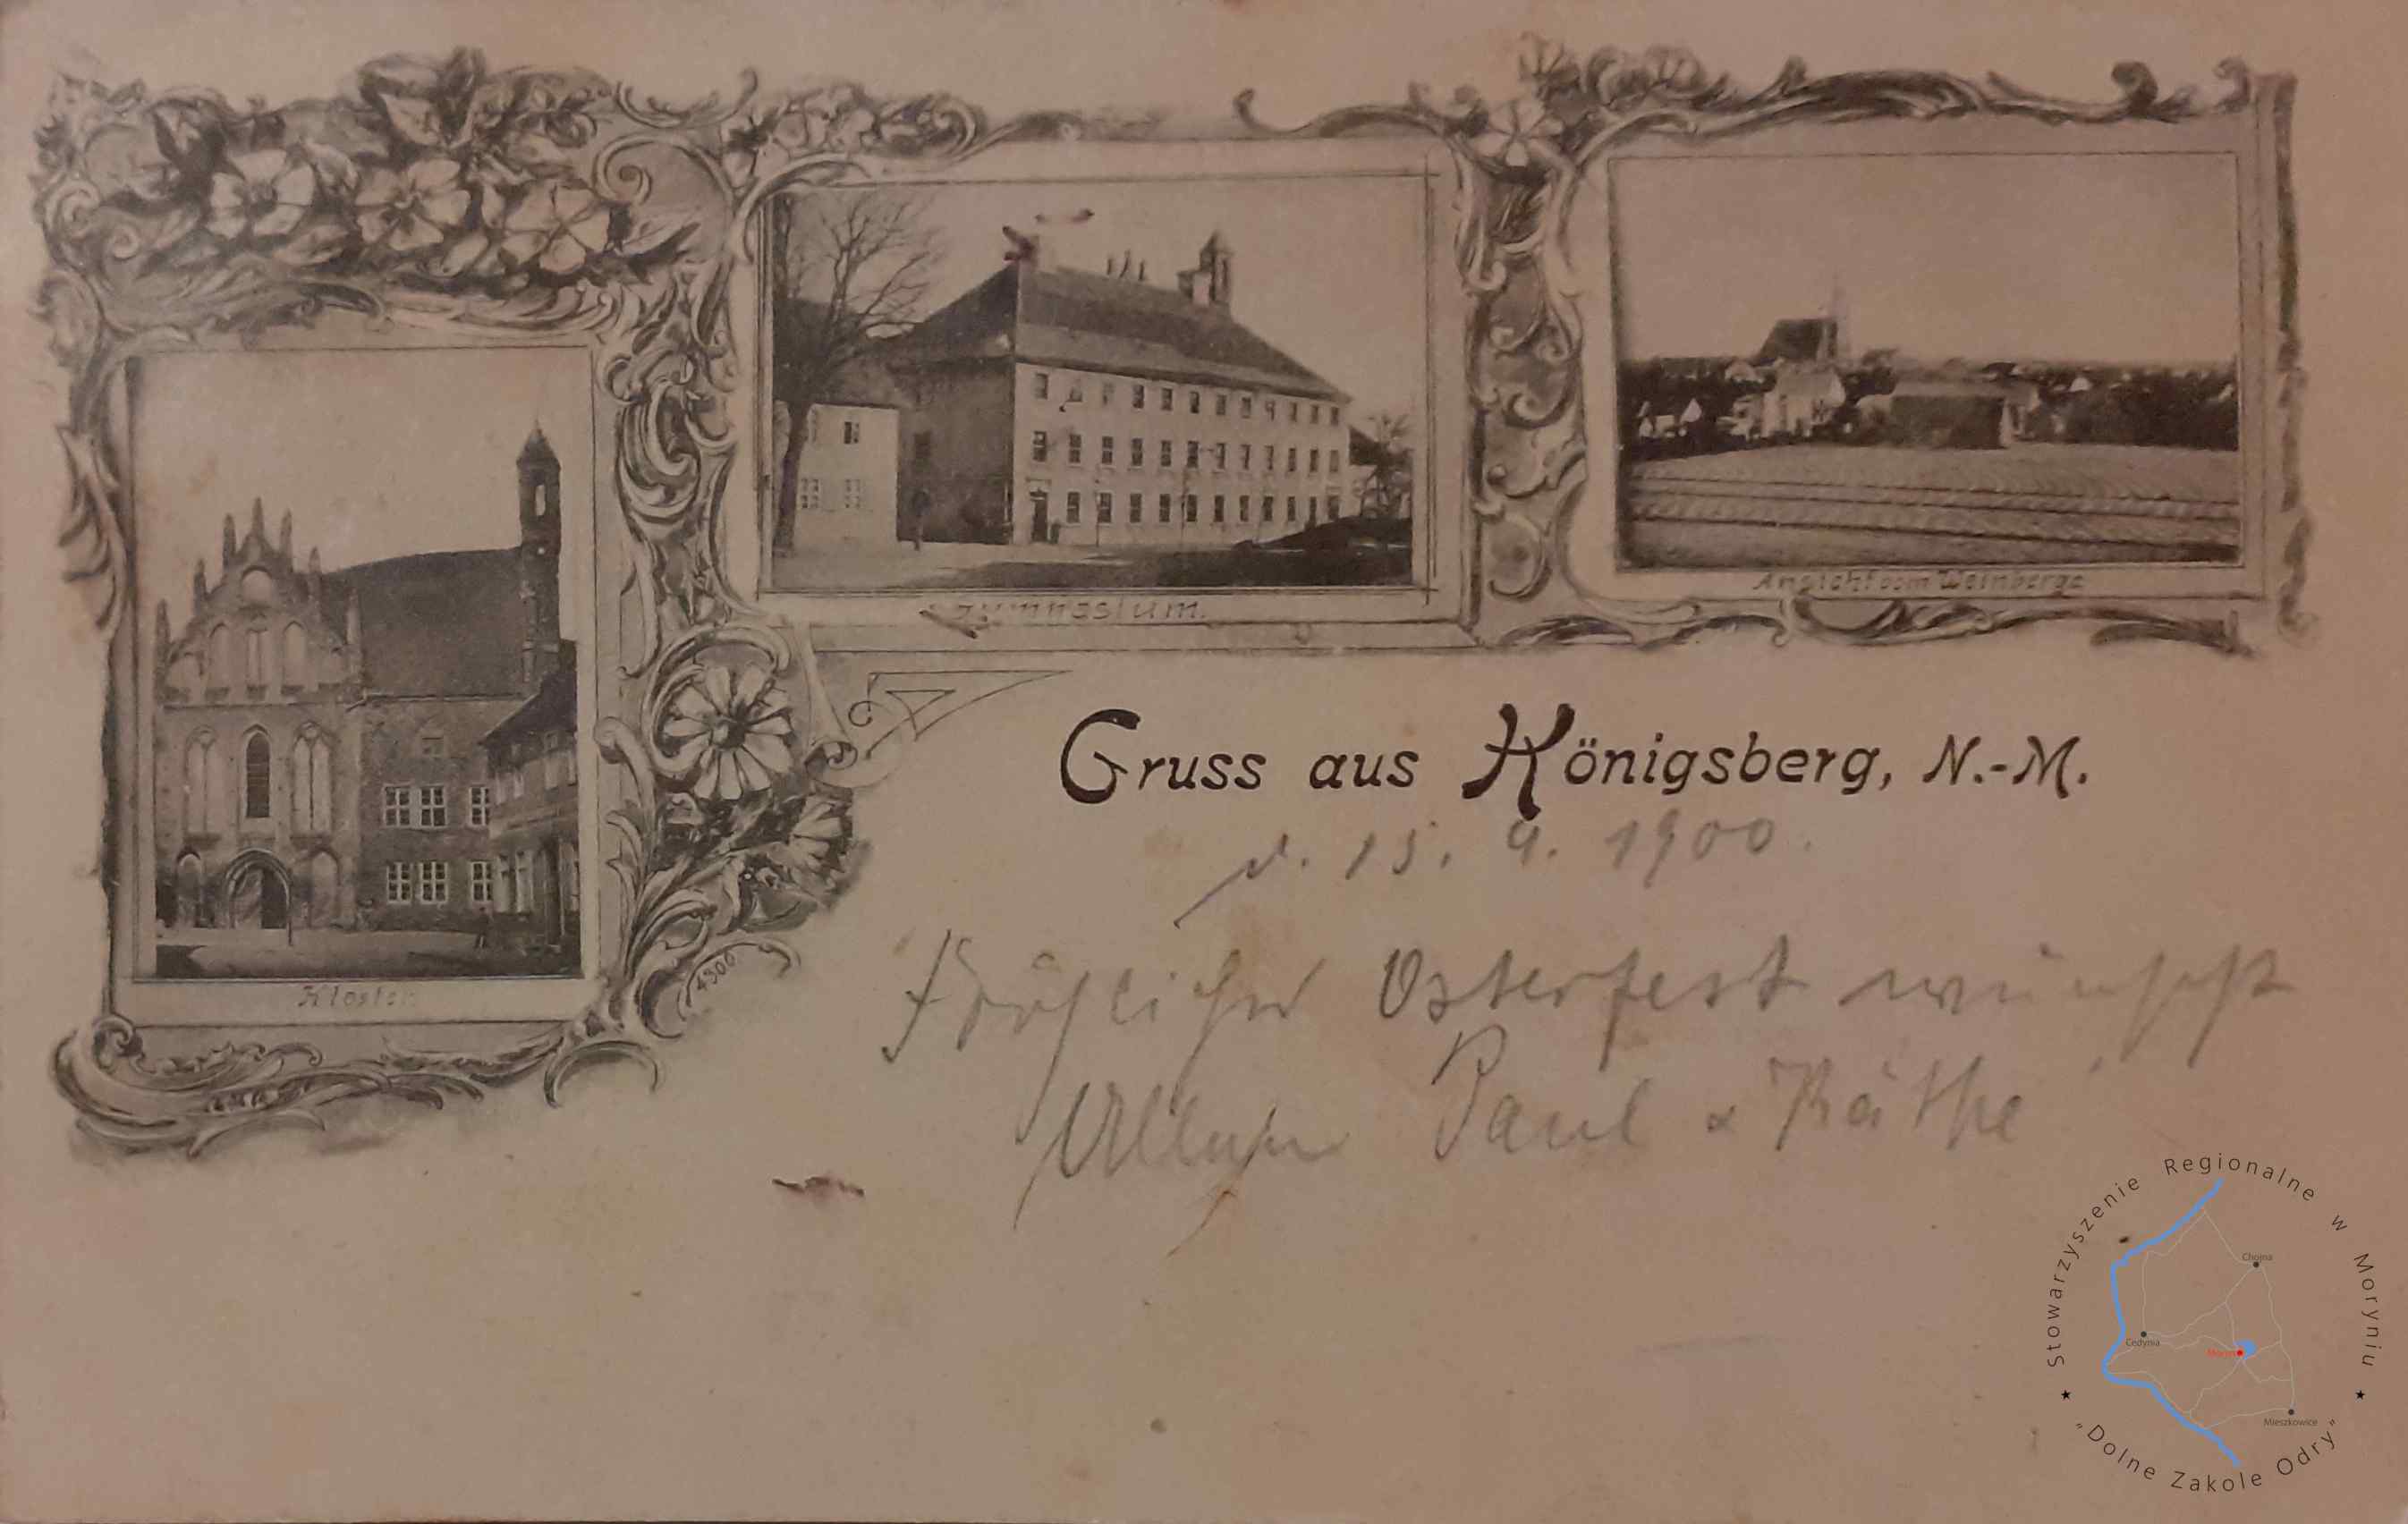 Kloster
Gymnasium.
Ansicht vom Weinberge
4900
Gruss aus Königsberg, N.-M.
d. 15. 4. 1900.
Fröhliches Osterfest wünscht
Paul u Käthe
Stowarzyszenie Regionalne w Moryniu
Chojna
Cedynia
Moryń
Mieszkowice
"Dolne Zakole Odry"